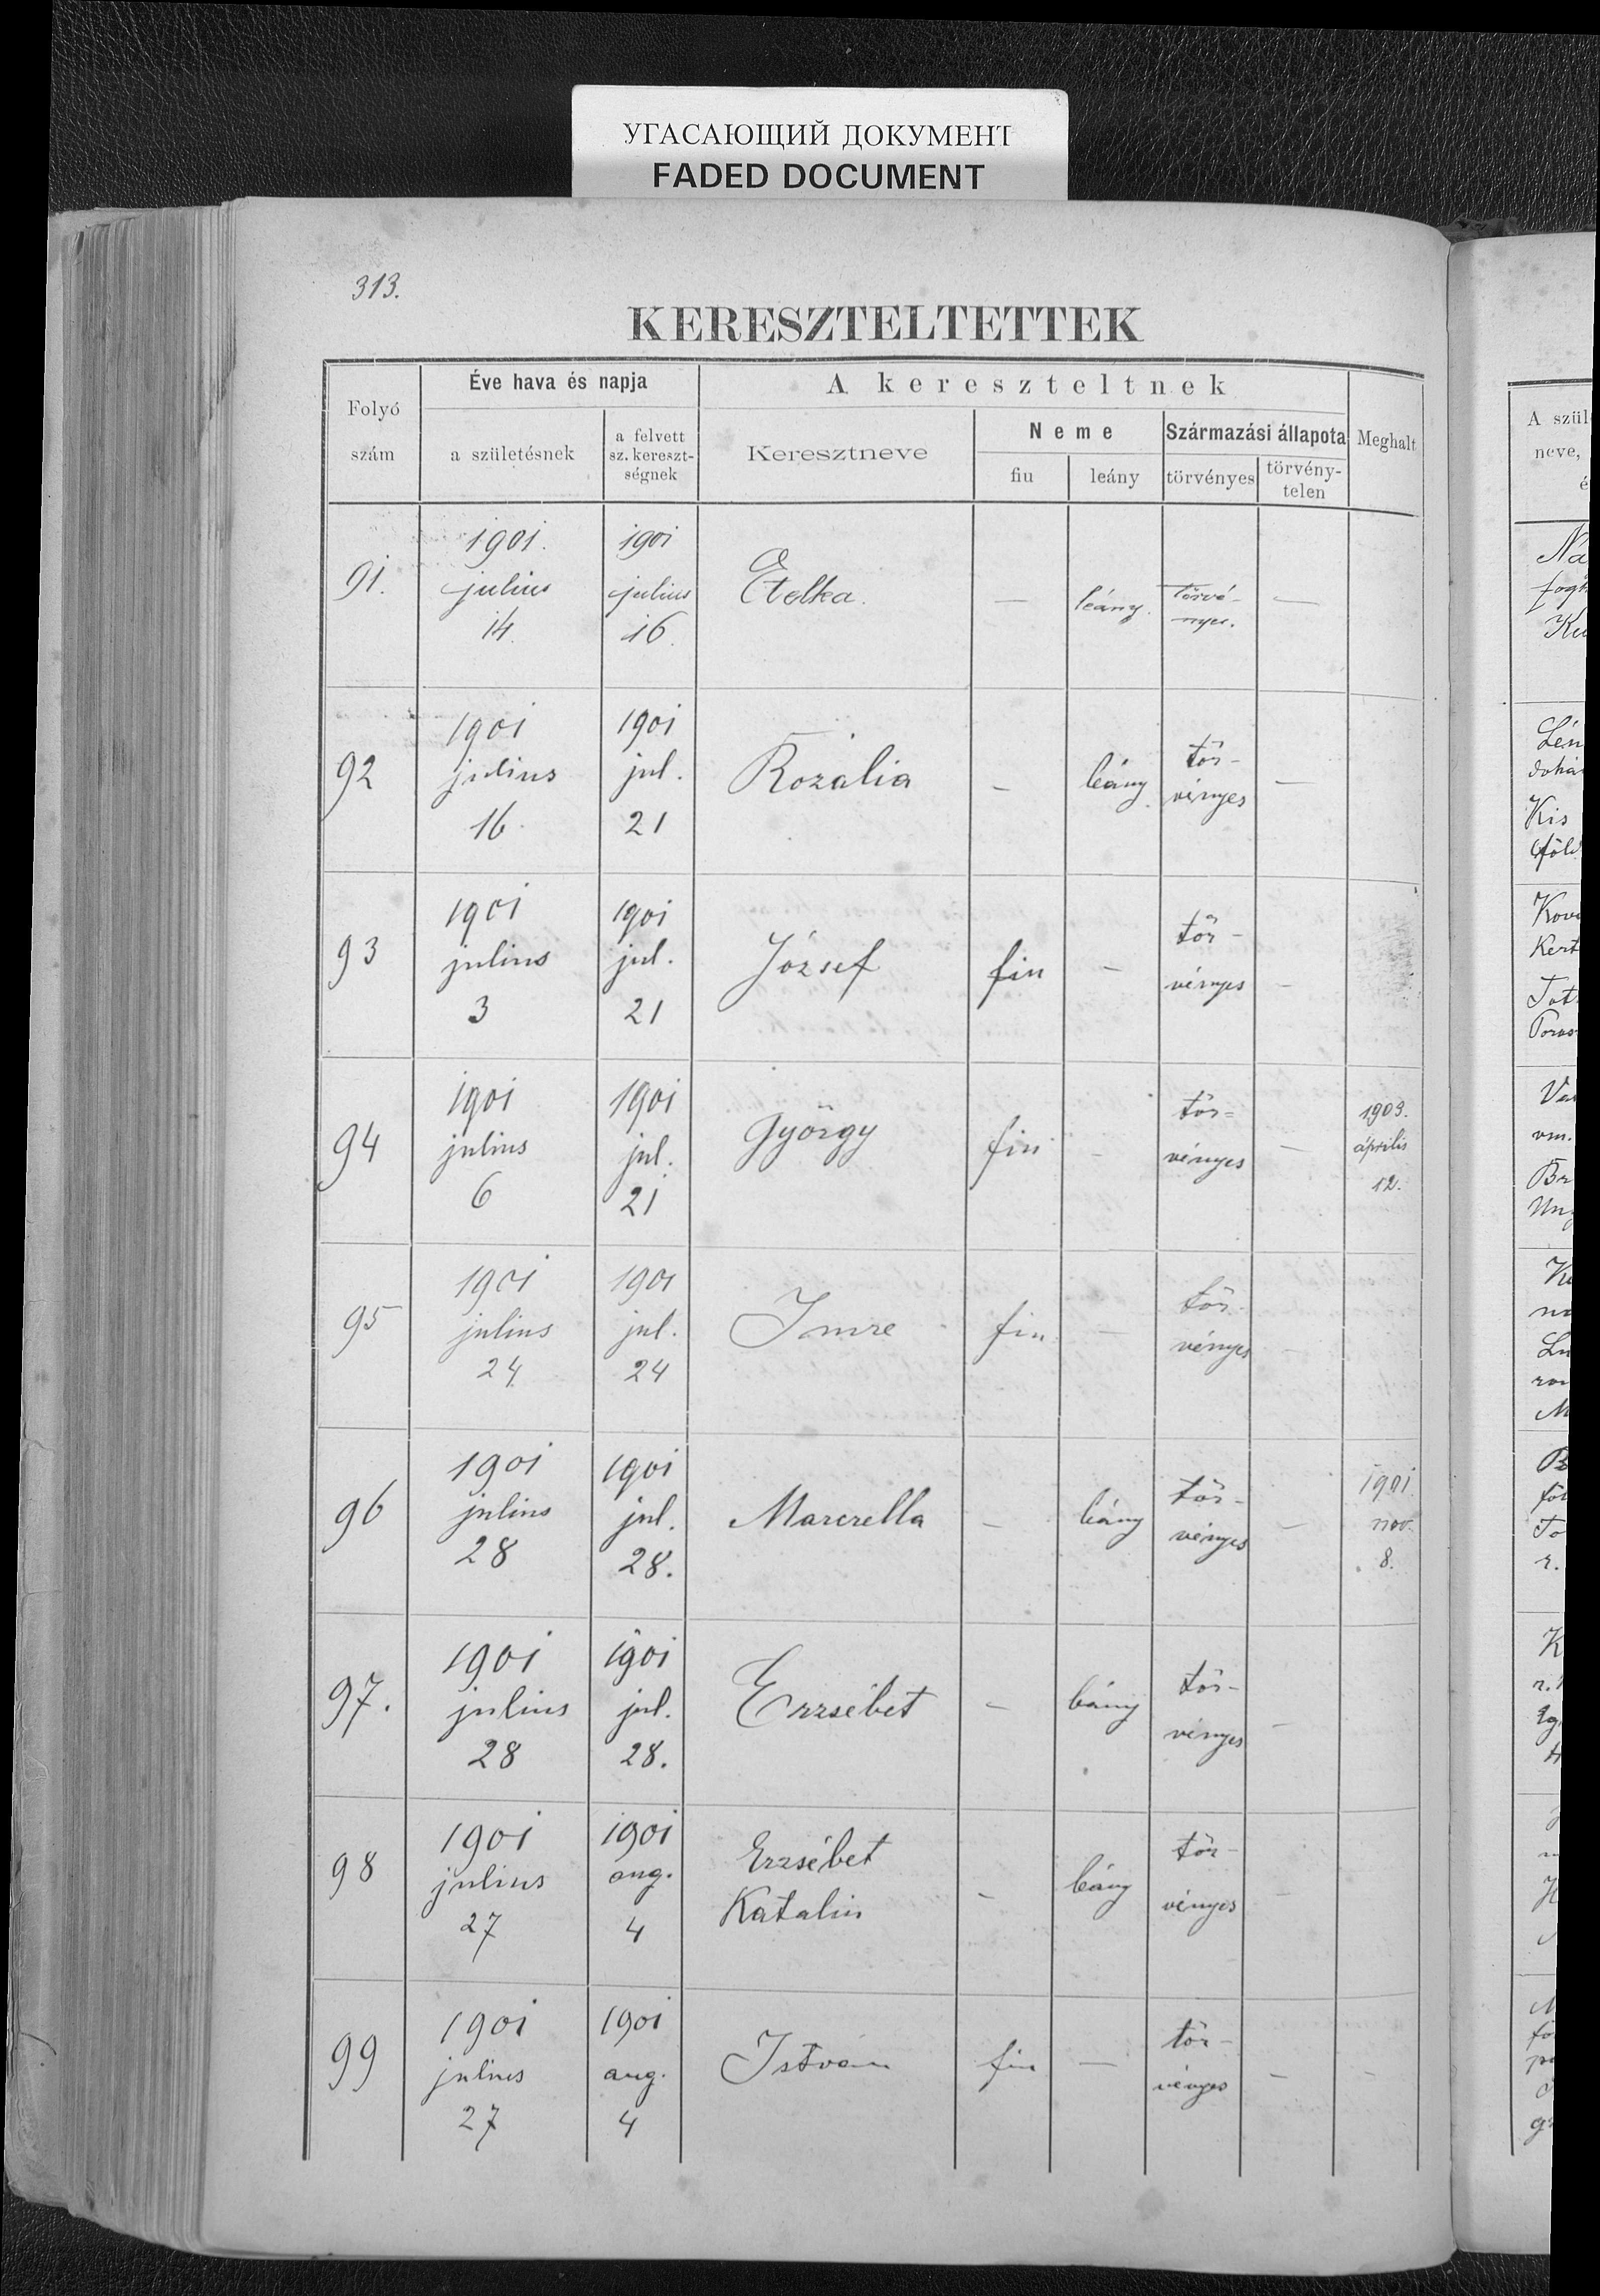 УГАСАЮЩИЙ ДОКУМЕНТ
FADED DOCUMENT
313.
KERESZTELTETTEK
Folyó szám
Éve hava és napja
a születésnek
a felvett sz. kereszt-ségnek
A kereszteltnek
Keresztneve
Neme
fiu
leány
Származási állapota
törvényes
törvény-telen
Meghalt
91. 1901. julius 14. 1901 julius 16. Etelka. — leány. törvé-nyes. —
92 1901 julius 16. 1901 jul. 21 Rozália — leány törvényes —
93 1901 julius 3 1901 jul. 21 József fiu — tör-vényes —
94 1901 julius 6 1901 jul. 21 György fiu — tör=vényes — 1903. április 12.
95 1901 julius 24 1901 jul. 24 Imre fiu — tör-vényes —
96 1901 julius 28 1901 jul. 28. Marcella — leány tör-vényes — 1901. nov. 8.
97. 1901 julius 28 1901 jul. 28. Erzsébet — leány tör-vényes —
98 1901 julius 27 1901 aug. 4 Erzsébet Katalin — leány tör-vényes —
99 1901 julius 27 1901 aug. 4 István fiu — tör-vényes — -
A szül
neve,
é